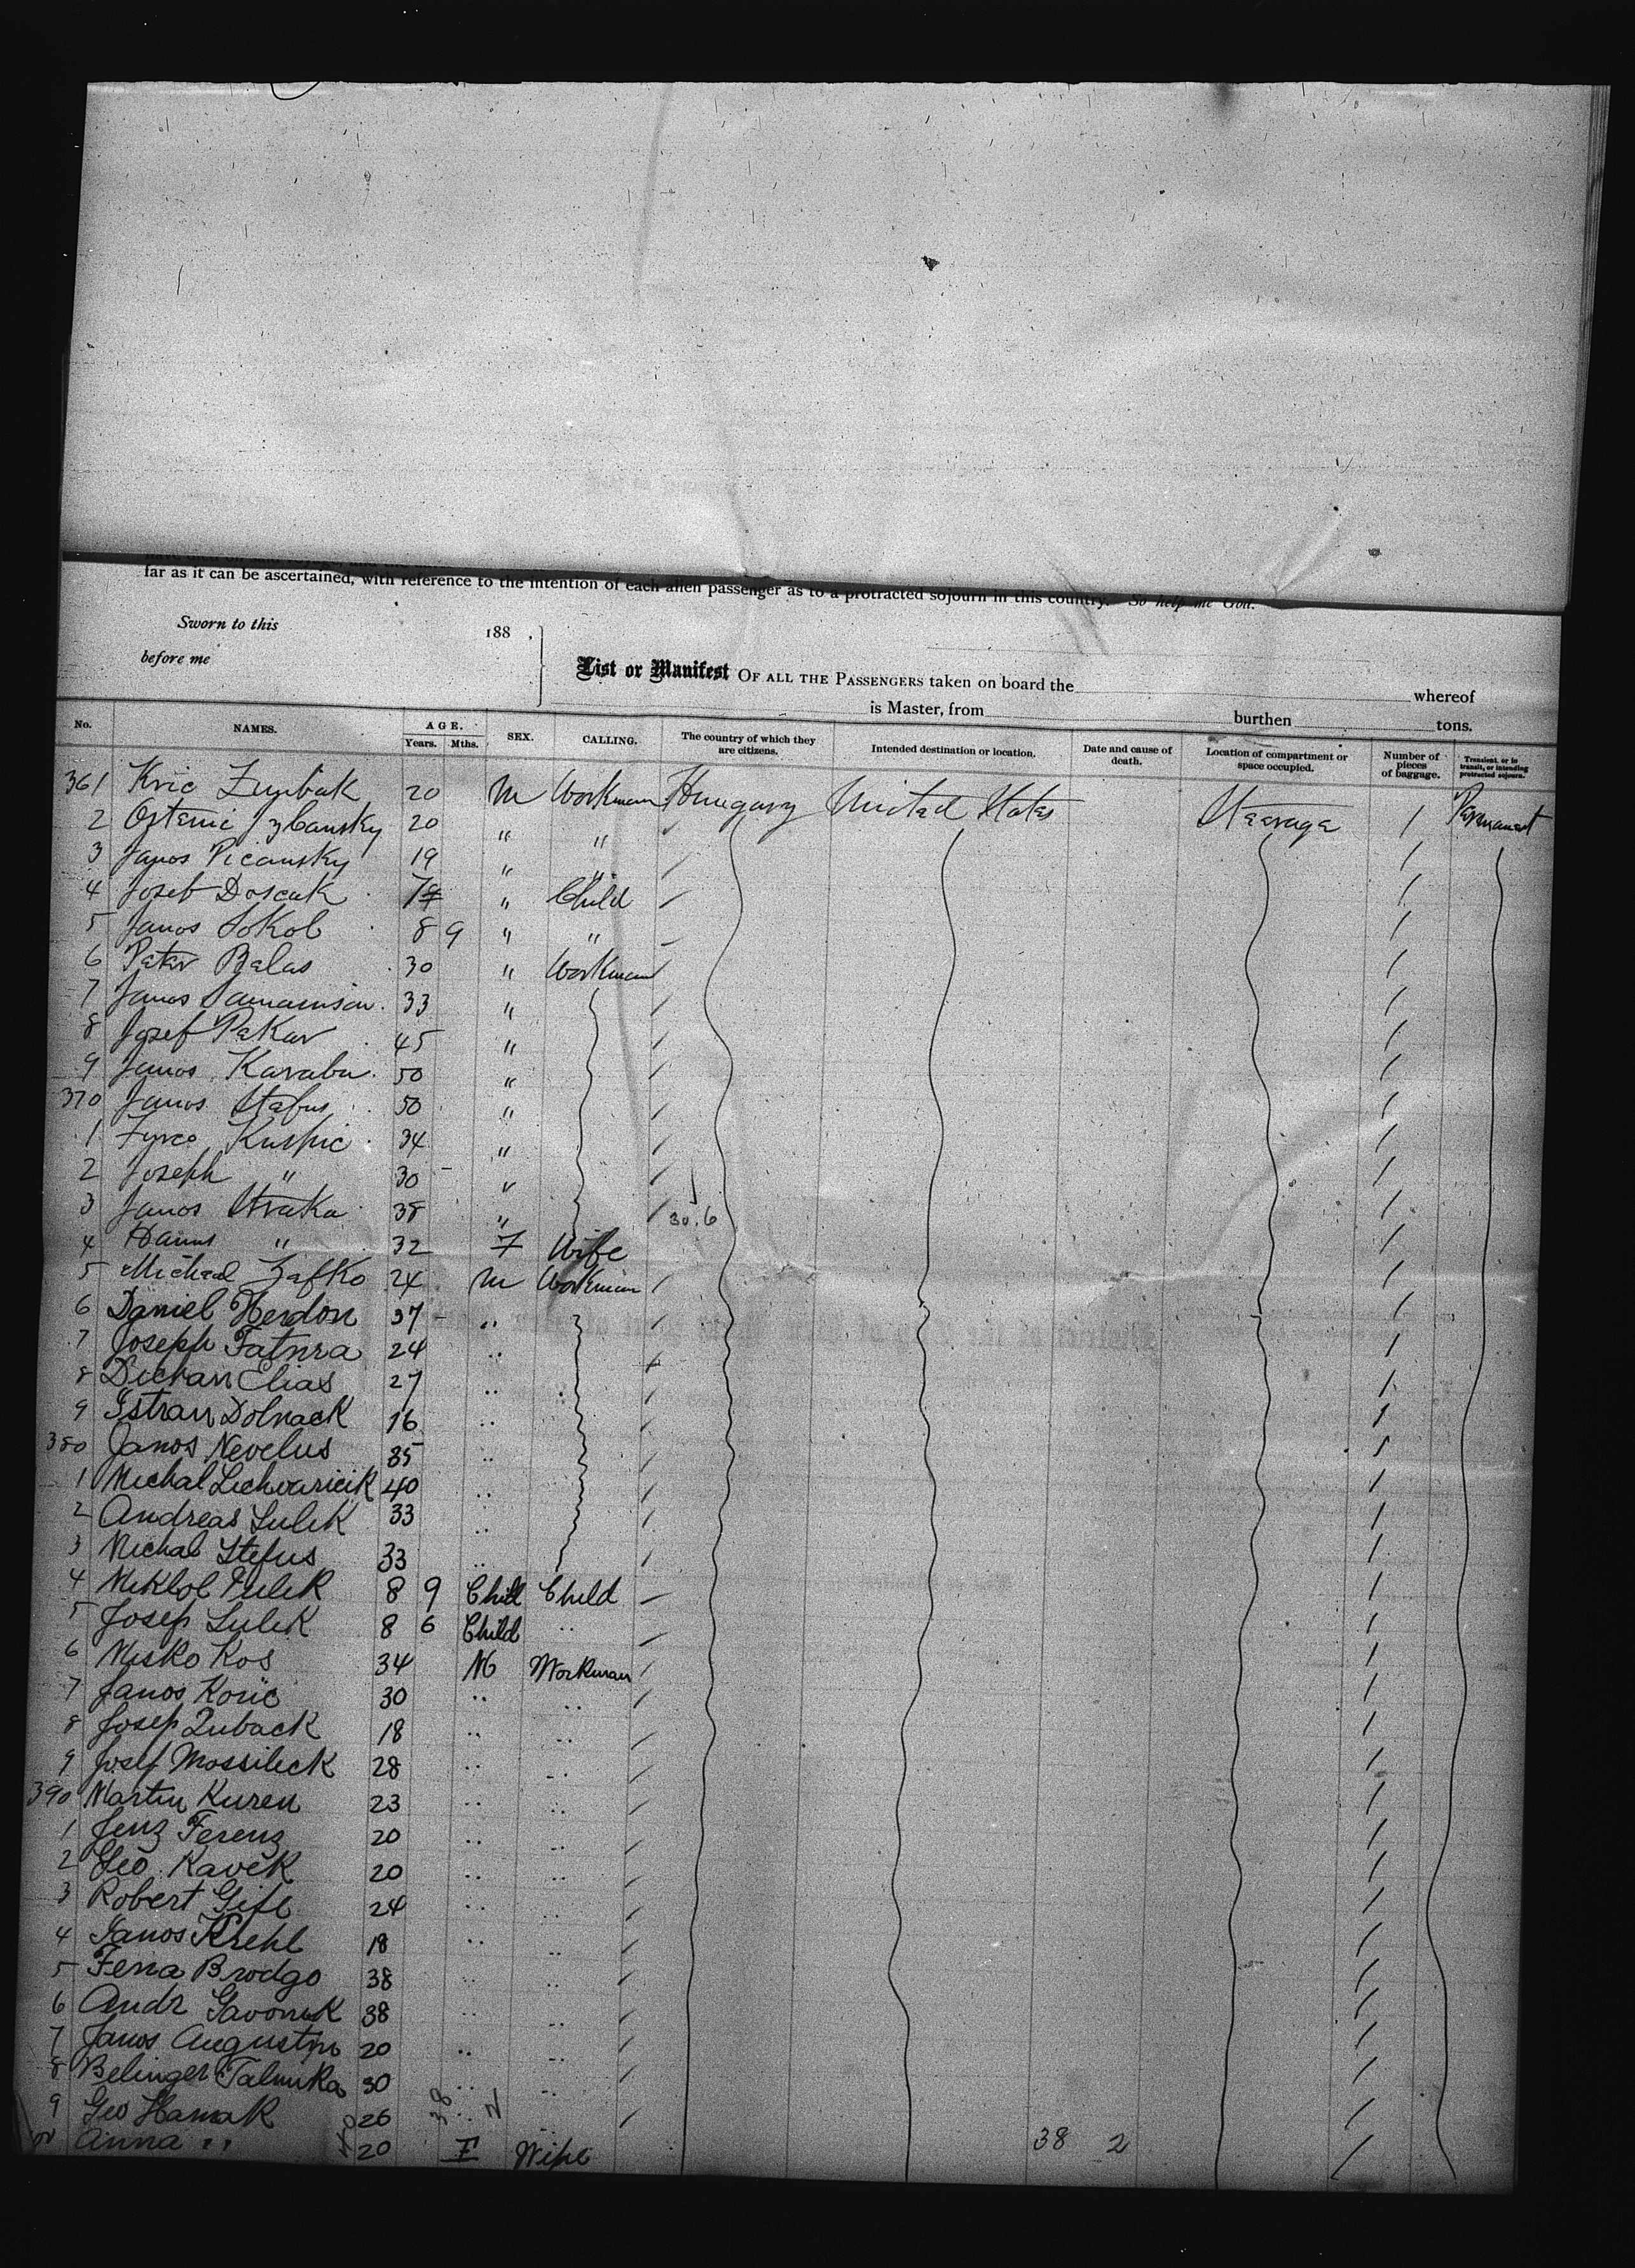 far as it can be ascertained, with reference to the intention of each alien passenger as to a protracted sojourn in this country. So help me God.
Sworn to this 188 ,
before me
List or Manifest OF ALL THE PASSENGERS taken on board the whereof
is Master, from burthen tons.
No. NAMES. AGE. Years. Mths. SEX. CALLING. The country of which they are citizens. Intended destination or location. Date and cause of death. Location of compartment or space occupied. Number of pieces of baggage. Transient, or in transit, or intending protracted sojourn.
361 Kric 20 M Workman Hungary United States Steerage 1 Permanent
2 20 " " /
3 Janos Picansky 19 " " /
4 Josef Doscak " Child /
5 Janos Sokol 8 9 " " /
6 Peter Balas 30 " Workman /
7 Janos 33 " /
8 Josef Pekar 45 " /
9 Janos Karaba 50 " /
370 Janos Stafus 50 " /
1 Kuspic 34 " /
2 Joseph " 30 " /
3 Janos Straka 38 " 30.6 /
4 " 32 F Wife /
5 Michael Zafko 24 M Workman /
6 Daniel Herdon 37 " /
7 Joseph Fatnra 24 " /
8 Elias 27 " /
9 Istran Dolnack 16 " /
380 Janos Nevelus 35 " /
1 Michal 40 " /
2 Andreas Lulek 33 " /
3 Michal Stefus 33 " /
4 Miklol 8 9 Child Child /
5 Josep Lulek 8 6 Child " /
6 Misko Kos 34 M Workman /
7 Janos Koric 30 " " /
8 Josep Zuback 18 " " /
9 Josef Mossileck 28 " " /
390 Martin Kuren 23 " " /
1 Jenz Ferenz 20 " " /
2 Geo. Kavek 20 " " /
3 Robert Gifl 24 " " /
4 Janos Krehl 18 " " /
5 Fena Brodgo 38 " " /
6 Andr Gavornik 38 " " /
7 Janos Augustin 20 " " /
8 Belinger Talmuka 30 " " /
9 Geo Hamak 26 " " /
Anna " 20 F Wife 38 2 /